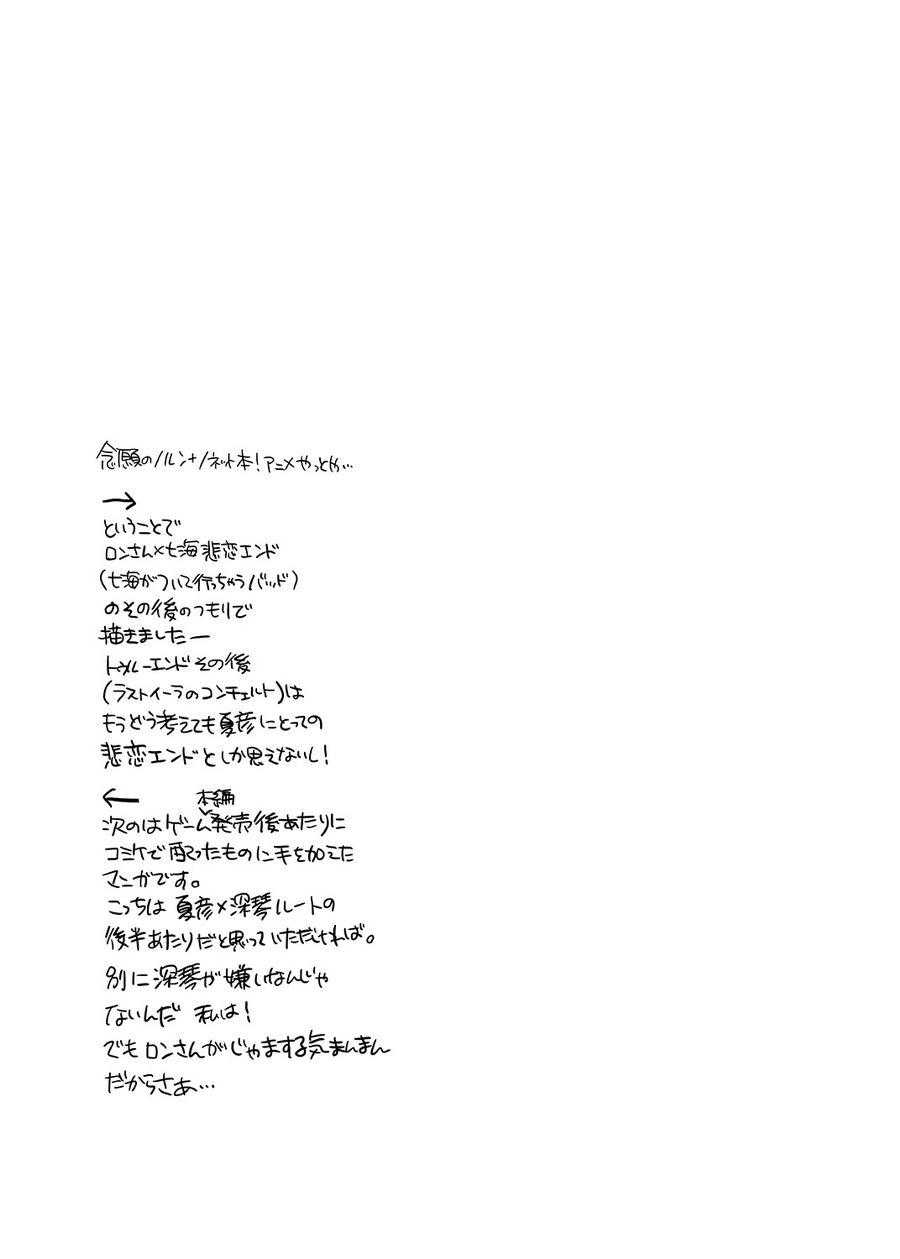 念願のノルン+ノネット本!アニメやっとや…
→
ということで
ロンさん×七海 悲恋エンド
(七海がついて行っちゃうバッド)
のその後のつもりで
描きましたー
トゥルーエンドその後
(ラストイーラのコンチェルト)は
もうどう考えても夏彦にとっての
悲恋エンドとしか思えないし!
←
次のは本編ゲーム発売後あたりに
コミケで配ったものに手を加えた
マンガです。
こっちは 夏彦×深琴ルートの
後半あたりだと思っていただければ。
別に深琴が嫌いなんじゃ
ないんだ 私は!
でもロンさんがじゃまする気まんまん
だからさぁ…